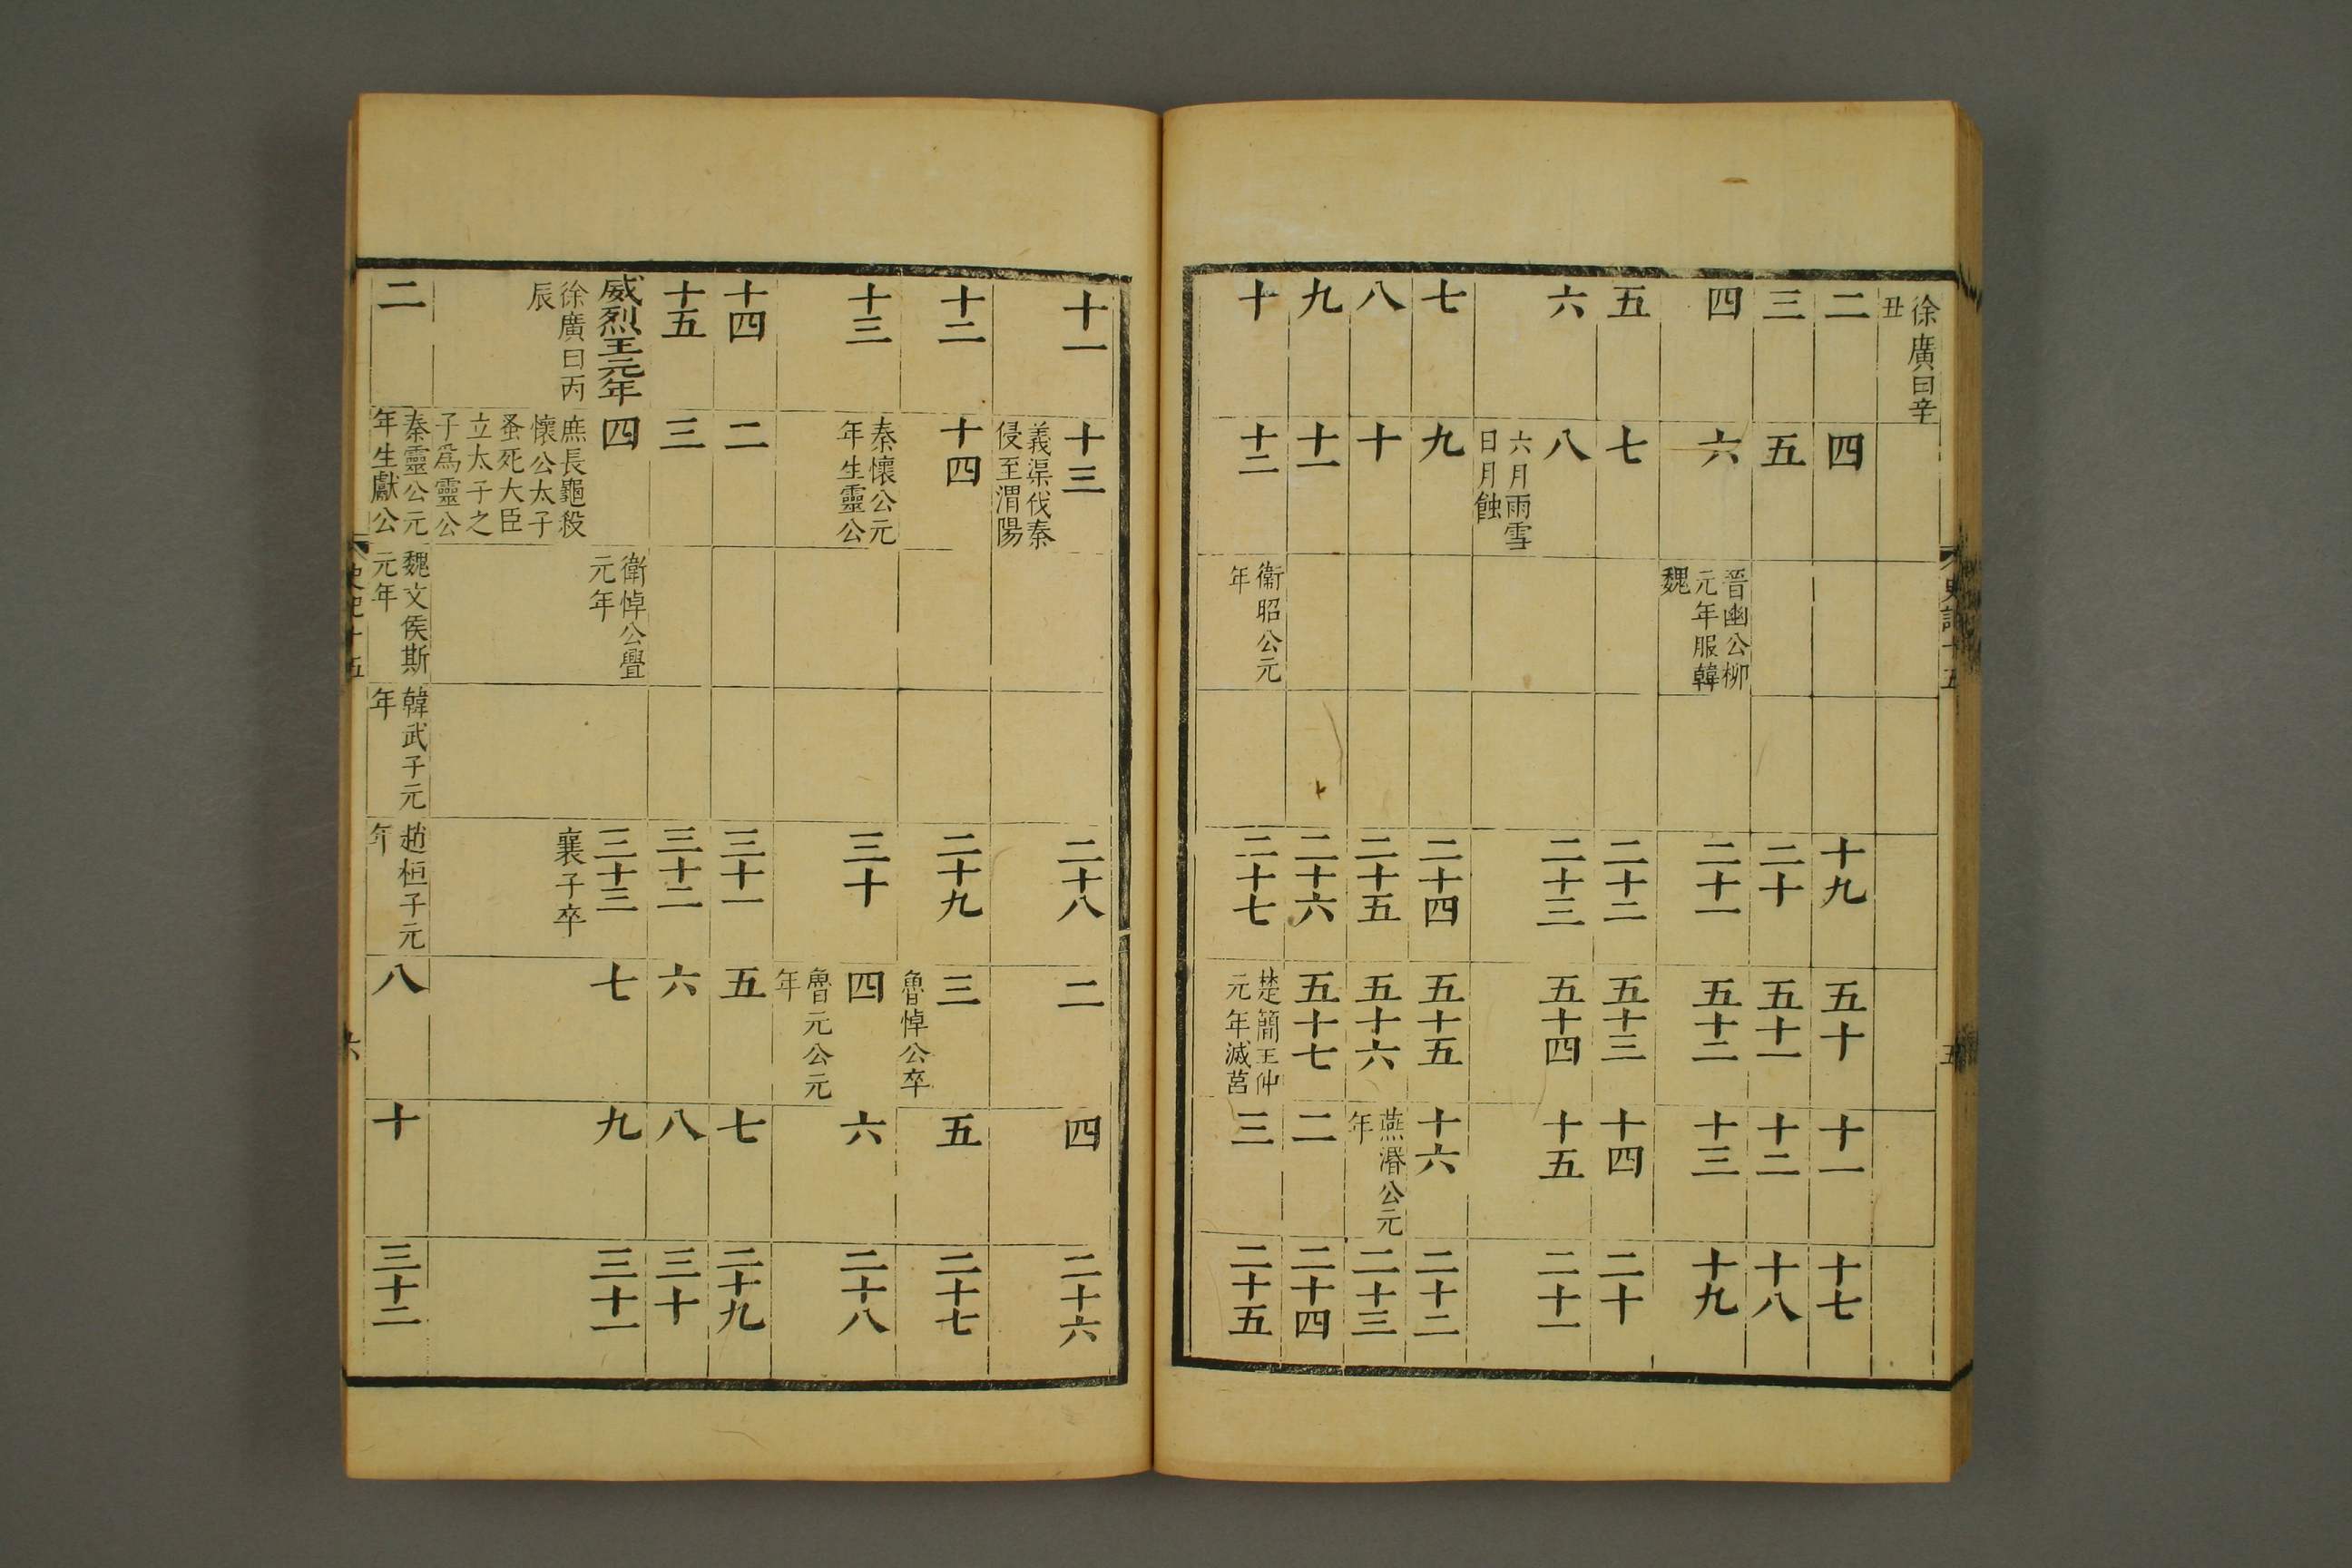 徐廣曰辛
丑
二
四
十九
五十
十一
十七
三
五
二十
五十一
十二
十八
四
六
晉幽公柳
元年服韓
魏
二十一
五十二
十三
十九
五
七
二十二
五十三
十四
二十
六
八
六月雨雪
日月蝕
二十三
五十四
十五
二十一
七
九
二十四
五十五
十六
二十二
八
十
二十五
五十六
燕湣公元
年
二十三
九
十一
二十六
五十七
二
二十四
十
十二
衞昭公元
年
二十七
楚簡王仲
元年滅莒
三
二十五
史記十五
五
十一
十三
義渠伐秦
侵至渭陽
二十八
二
四
二十六
十二
十四
二十九
三
魯悼公卒
五
二十七
十三
秦懷公元
年生靈公
三十
四
魯元公元
年
六
二十八
十四
二
三十一
五
七
二十九
十五
三
三十二
六
八
三十
威烈王元年
徐廣曰丙
辰
四
庶長鼂殺
懷公太子
蚤死大臣
立太子之
子爲靈公
衞悼公亹
元年
三十三
襄子卒
七
九
三十一
二
秦靈公元
年生獻公
魏文侯斯
元年
韓武子元
年
趙桓子元
年
八
十
三十二
史記十五
六